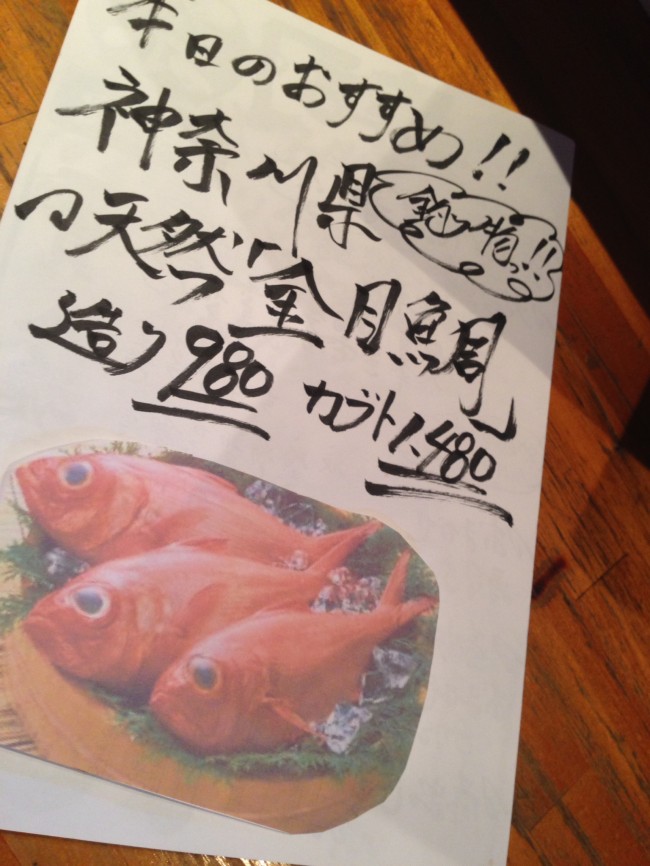 本日のおすすめ!!
神奈川県
釣り物っ!!
の天然金目鯛
造り 980 カブト 1,480